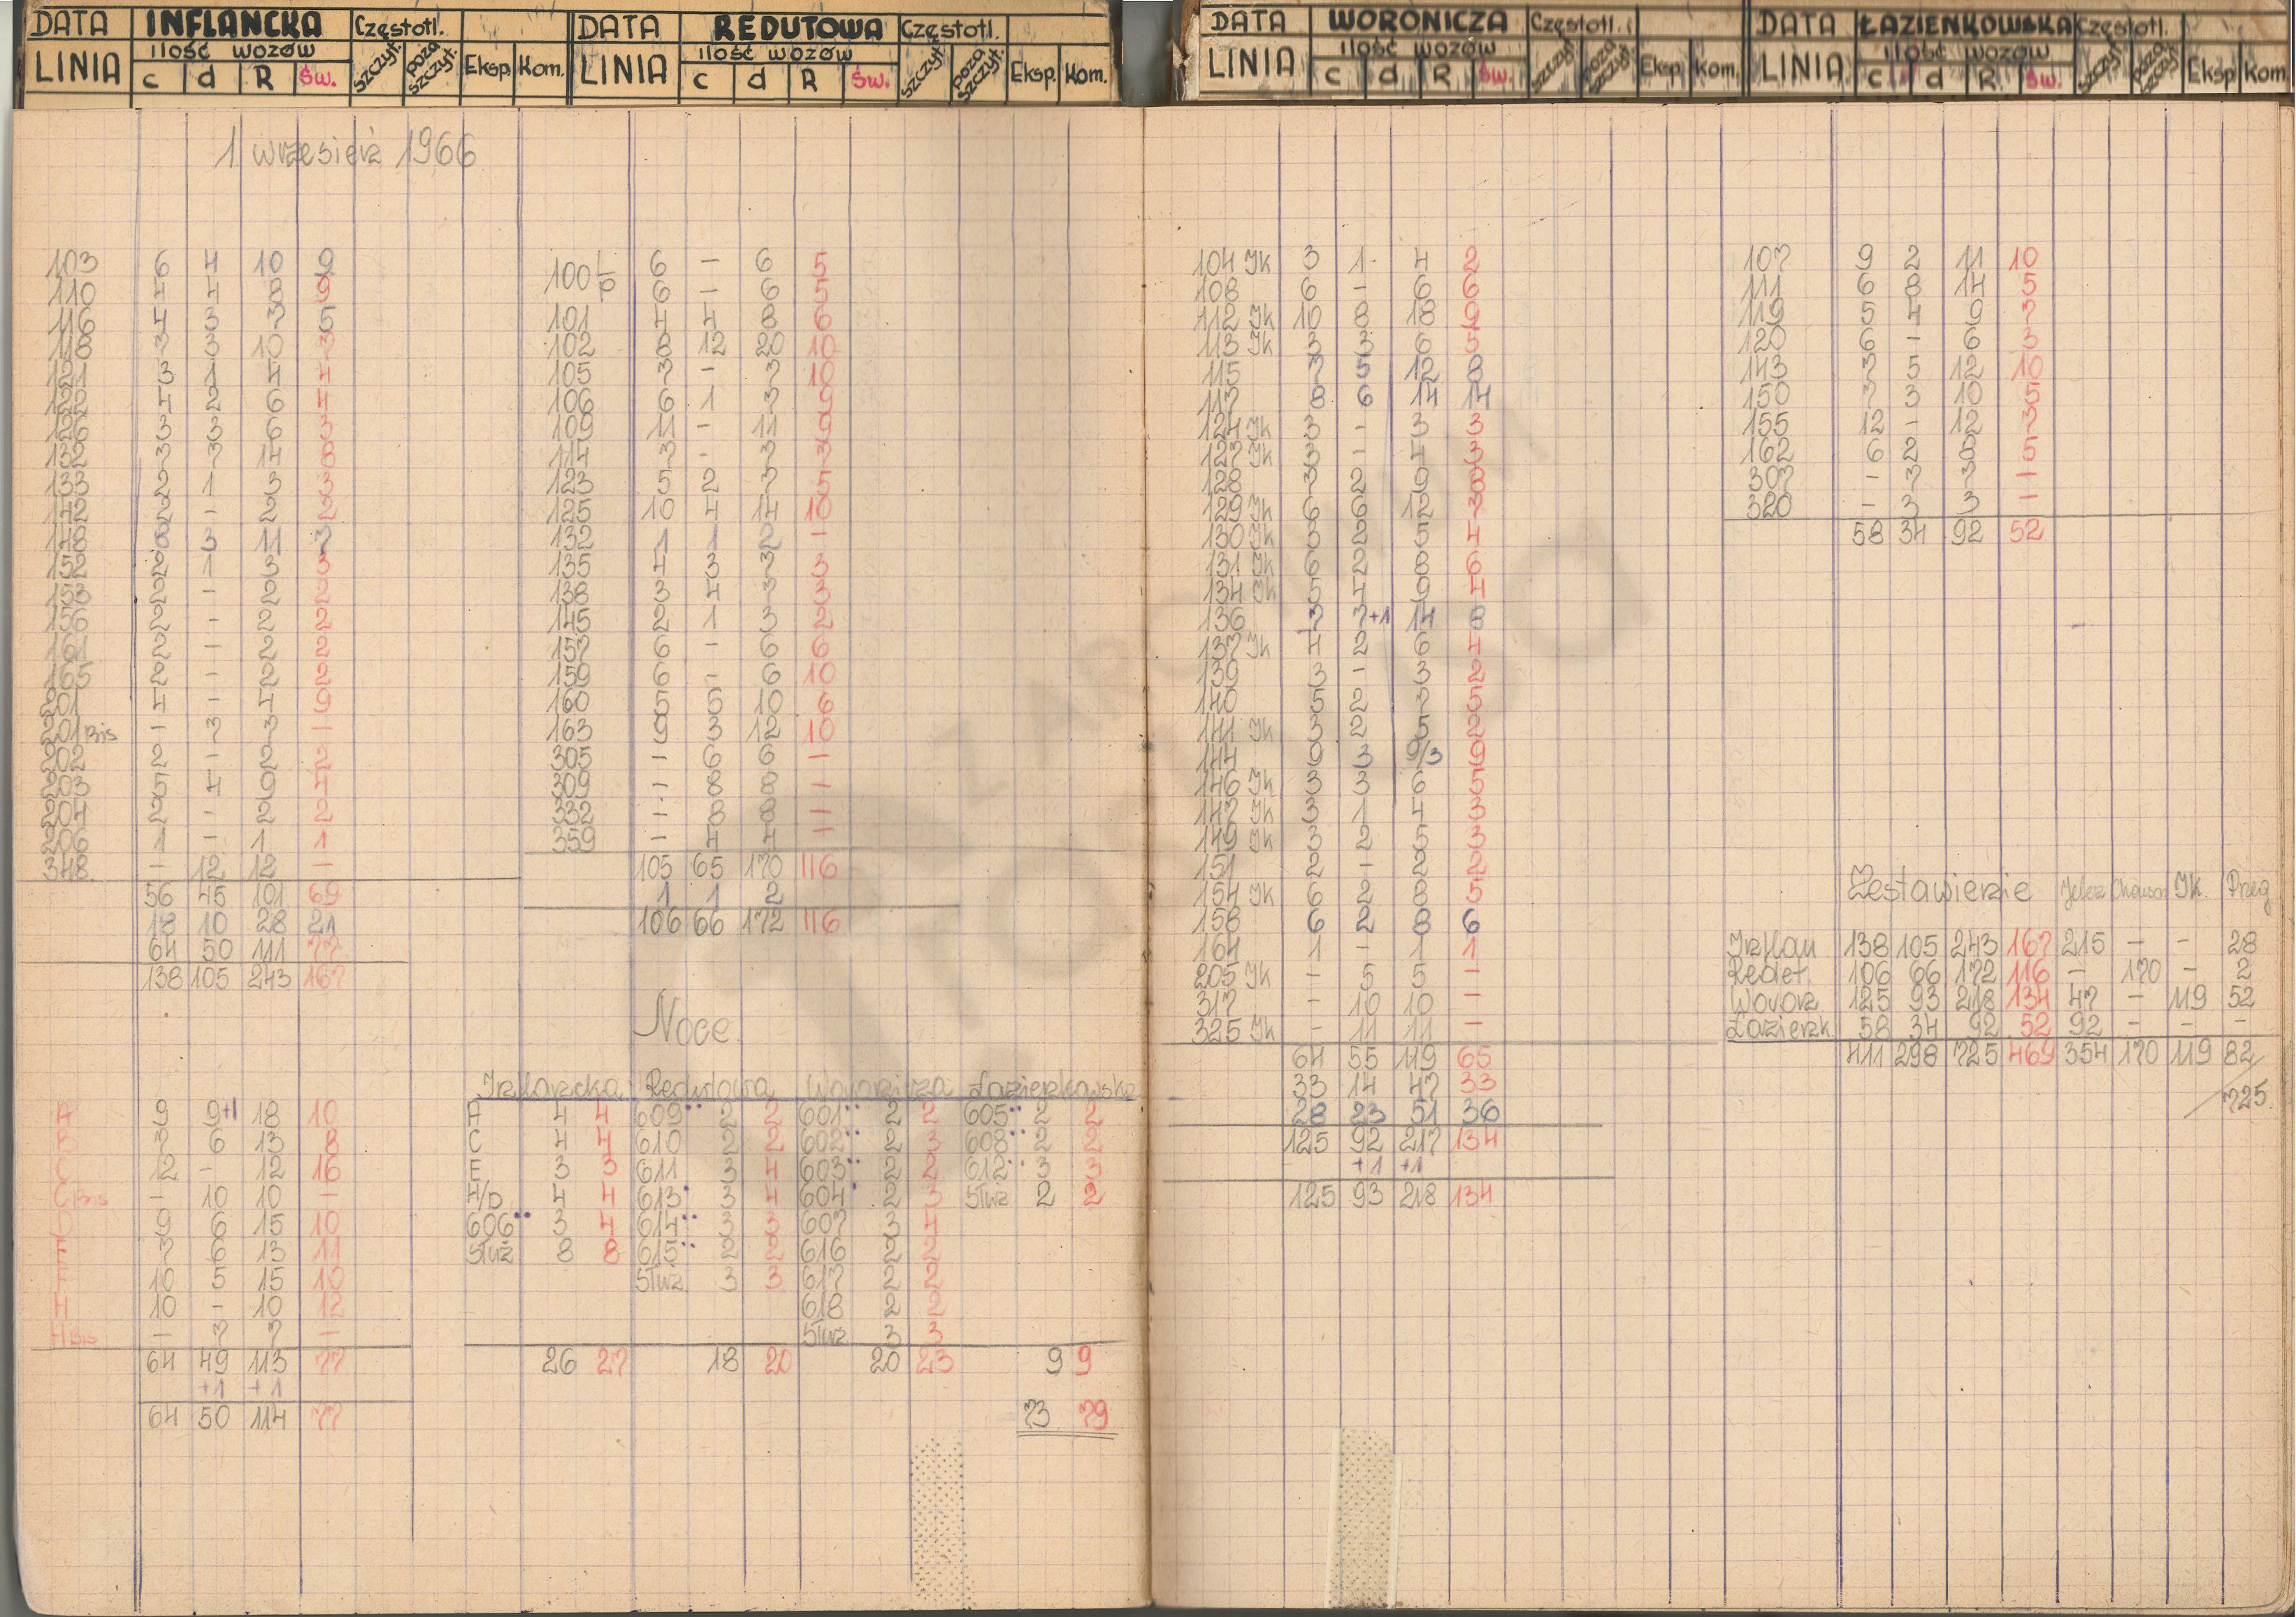 DATA INFLANCKA Częstotl.
LINIA ilość wozów szczyt. poza szczyt. Eksp. Kom.
c d R Św.
1 wrzesień 1966
103 6 4 10 9
110 4 4 8 9
116 4 3 7 5
118 7 3 10 3
121 3 1 4 4
122 4 2 6 4
126 3 3 6 3
132 7 7 14 8
133 2 1 3 3
142 2 - 2 2
148 8 3 11 7
152 2 1 3 3
153 2 - 2 2
156 2 - 2 2
161 2 - 2 2
165 2 - 2 2
201 4 - 4 9
201 Bis - 7 7 -
202 2 - 2 2
203 5 4 9 4
204 2 - 2 2
206 1 - 1 1
348 - 12 12 -
56 45 101 69
18 10 28 21
64 50 111 77
138 105 243 167
A 9 9+1 18 10
B 7 6 13 8
C 12 - 12 16
C Bis - 10 10 -
D 9 6 15 10
E 7 6 13 11
F 10 5 15 10
H 10 - 10 12
H Bis - 7 7 -
64 49 113 77
+1 +1
64 50 114 77
DATA REDUTOWA Częstotl.
LINIA ilość wozów szczyt. poza szczyt. Eksp. Kom.
c d R Św.
100 L 6 - 6 5
P 6 - 6 5
101 4 4 8 6
102 8 12 20 10
105 7 - 7 10
106 6 1 7 9
109 11 - 11 9
114 7 - 7 3
123 5 2 7 5
125 10 4 14 10
132 1 1 2 -
135 4 3 7 3
138 3 4 7 3
145 2 1 3 2
157 6 - 6 6
159 6 - 6 10
160 5 5 10 6
163 9 3 12 10
305 - 6 6 -
309 - 8 8 -
332 - 8 8 -
359 - 4 4 -
105 65 170 116
1 1 2
106 66 172 116
Noce
Inflancka Redutowa Woronicza Łazienkowska
A 4 4 609 2 2 601 2 2 605 2 2
C 4 4 610 2 2 602 2 3 608 2 2
E 3 3 611 3 4 603 2 2 612 3 3
H/D 4 4 613 3 4 604 2 3 Służ 2 2
606 3 4 614 3 3 607 3 4
Służ 8 8 615 2 2 616 2 2
Służ 3 3 617 2 2
618 2 2
Służ 3 3
26 27 18 20 20 23 9 9
73 79
DATA WORONICZA Częstotl.
LINIA ilość wozów szczyt. poza szczyt. Eksp. Kom.
c d R Św.
104 Ik 3 1 4 2
108 6 - 6 6
112 Ik 10 8 18 9
113 Ik 3 3 6 5
115 7 5 12 8
117 8 6 14 14
124 Ik 3 - 3 3
127 Ik 3 - 4 3
128 7 2 9 8
129 Ik 6 6 12 7
130 Ik 3 2 5 4
131 Ik 6 2 8 6
134 Ik 5 4 9 4
136 7 7+1 14 8
137 Ik 4 2 6 4
139 3 - 3 2
140 5 2 7 5
141 Ik 3 2 5 2
144 9 3 9/3 9
146 Ik 3 3 6 5
147 Ik 3 1 4 3
149 Ik 3 2 5 3
151 2 - 2 2
154 Ik 6 2 8 5
158 6 2 8 6
164 1 - 1 1
205 Ik - 5 5 -
317 - 10 10 -
325 Ik - 11 11 -
64 55 119 65
33 14 47 33
28 23 51 36
125 92 217 134
+1 +1
125 93 218 134
DATA ŁAZIENKOWSKA Częstotl.
LINIA ilość wozów szczyt. poza szczyt. Eksp Kom.
c d R. Św.
107 9 2 11 10
111 6 8 14 5
119 5 4 9 7
120 6 - 6 3
143 7 5 12 10
150 7 3 10 5
155 12 - 12 7
162 6 2 8 5
307 - 7 7 -
320 - 3 3 -
58 34 92 52
Zestawienie Jelcz Chauson IK. Przeg
Inflan 138 105 243 167 215 - - 28
Redut. 106 66 172 116 - 170 - 2
Woron 125 93 218 134 47 - 119 52
Łazienk 58 34 92 52 92 - - -
411 298 725 469 354 170 119 82
725